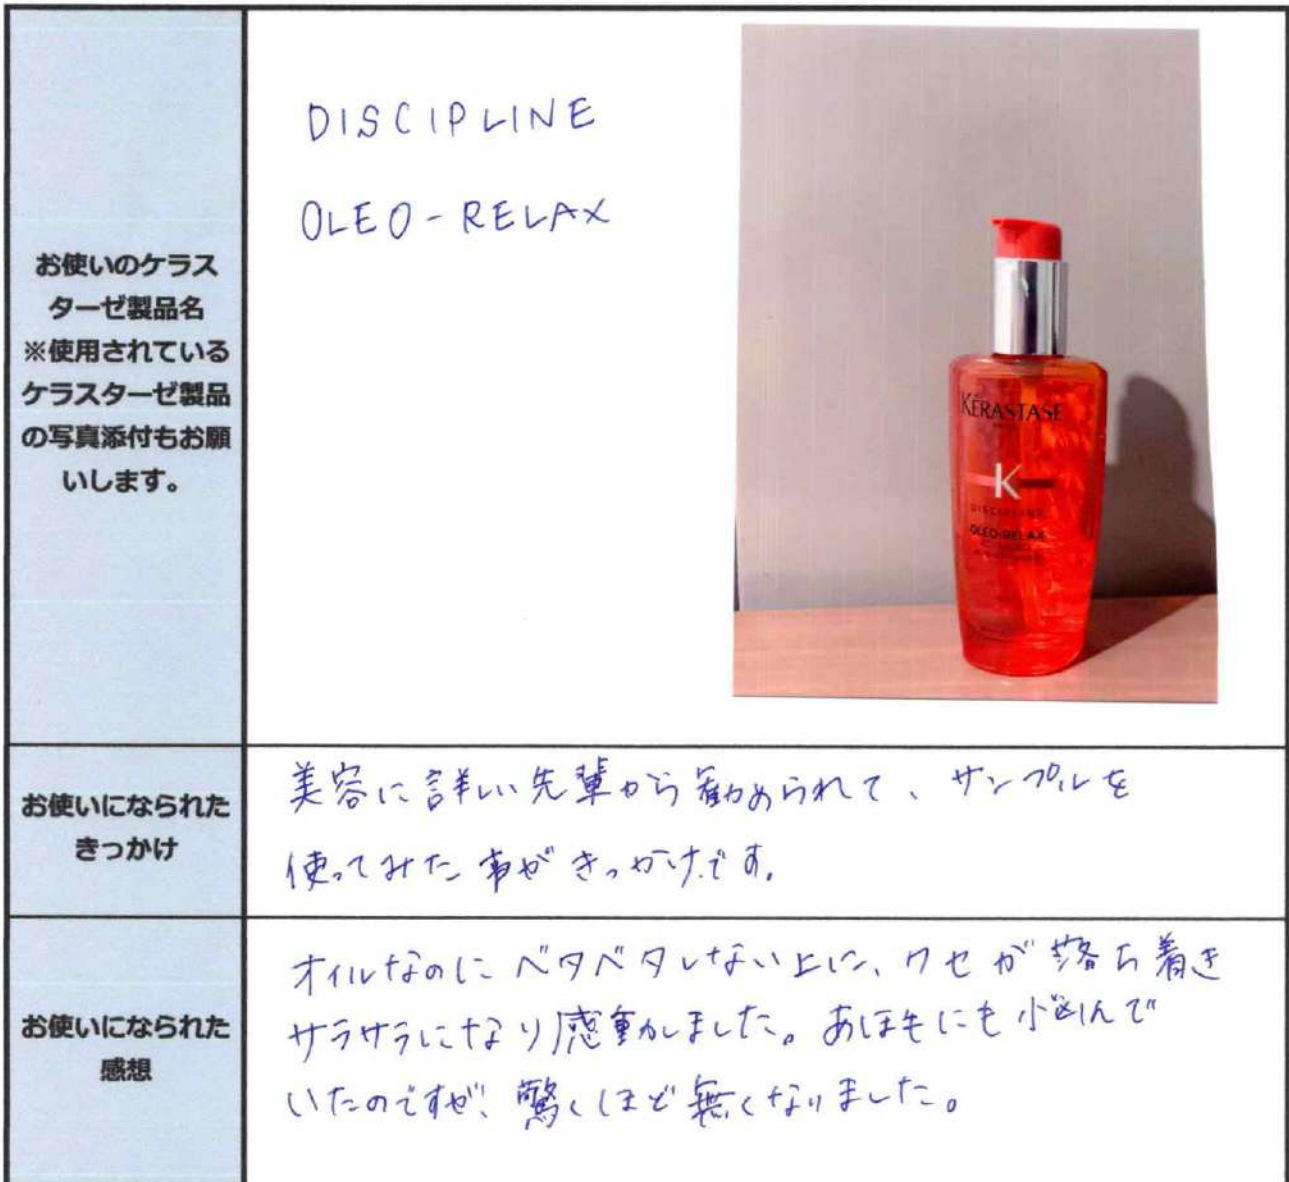 お使いのケラス
ターゼ製品名
※使用されている
ケラスターゼ製品
の写真添付もお願
いします。
DISCIPLINE
OLEO-RELAX
KÉRASTASE
K
DISCIPLINE
OLEO-RELAX
お使いになられた
きっかけ
美容に詳しい先輩から勧められて、サンプルを
使ってみた事がきっかけです。
お使いになられた
感想
オイルなのにベタベタしない上に、クセが落ち着き
サラサラになり感動しました。あほ毛にも悩んで
いたのですが、驚くほど無くなりました。